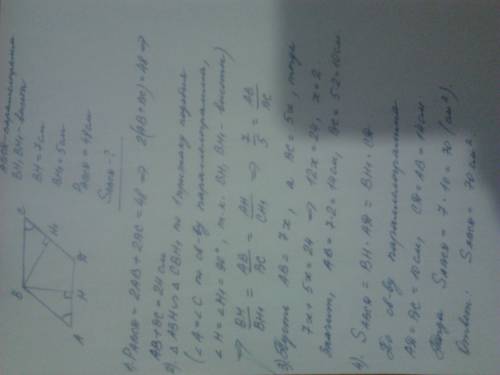 ABCD-параллелограмм
BH, BH₁-высоты
BH=7см
BH₁=5см
P_ABCD=48см
S_ABCD-?
B
C
H₁
A
H
D
1. P_ABCD=2AB+2BC=48 ⇒ 2(AB+BC)=48 ⇒
AB+BC=24 см
2). △ABH∾△CBH₁ по 1 признаку подобия
(∠A=∠C по св-ву параллелограмма,
∠H=∠H₁=90°, т.к. BH, BH₁-высоты)
⇒ BH/BH₁ = AB/BC = AH/CH₁ ⇒ 7/5 = AB/BC
3) Пусть AB=7x, а BC=5x, тогда
7x+5x=24 ⇒ 12x=24, x=2
Значит, AB=7·2=14см, BC=5·2=10см
4). S_ABCD=BH·AD=BH₁·CD
По св-ву параллелограмма
AD=BC=10см, CD=AB=14см
Тогда S_ABCD=7·10=70 (см²).
Ответ: S_ABCD=70см²